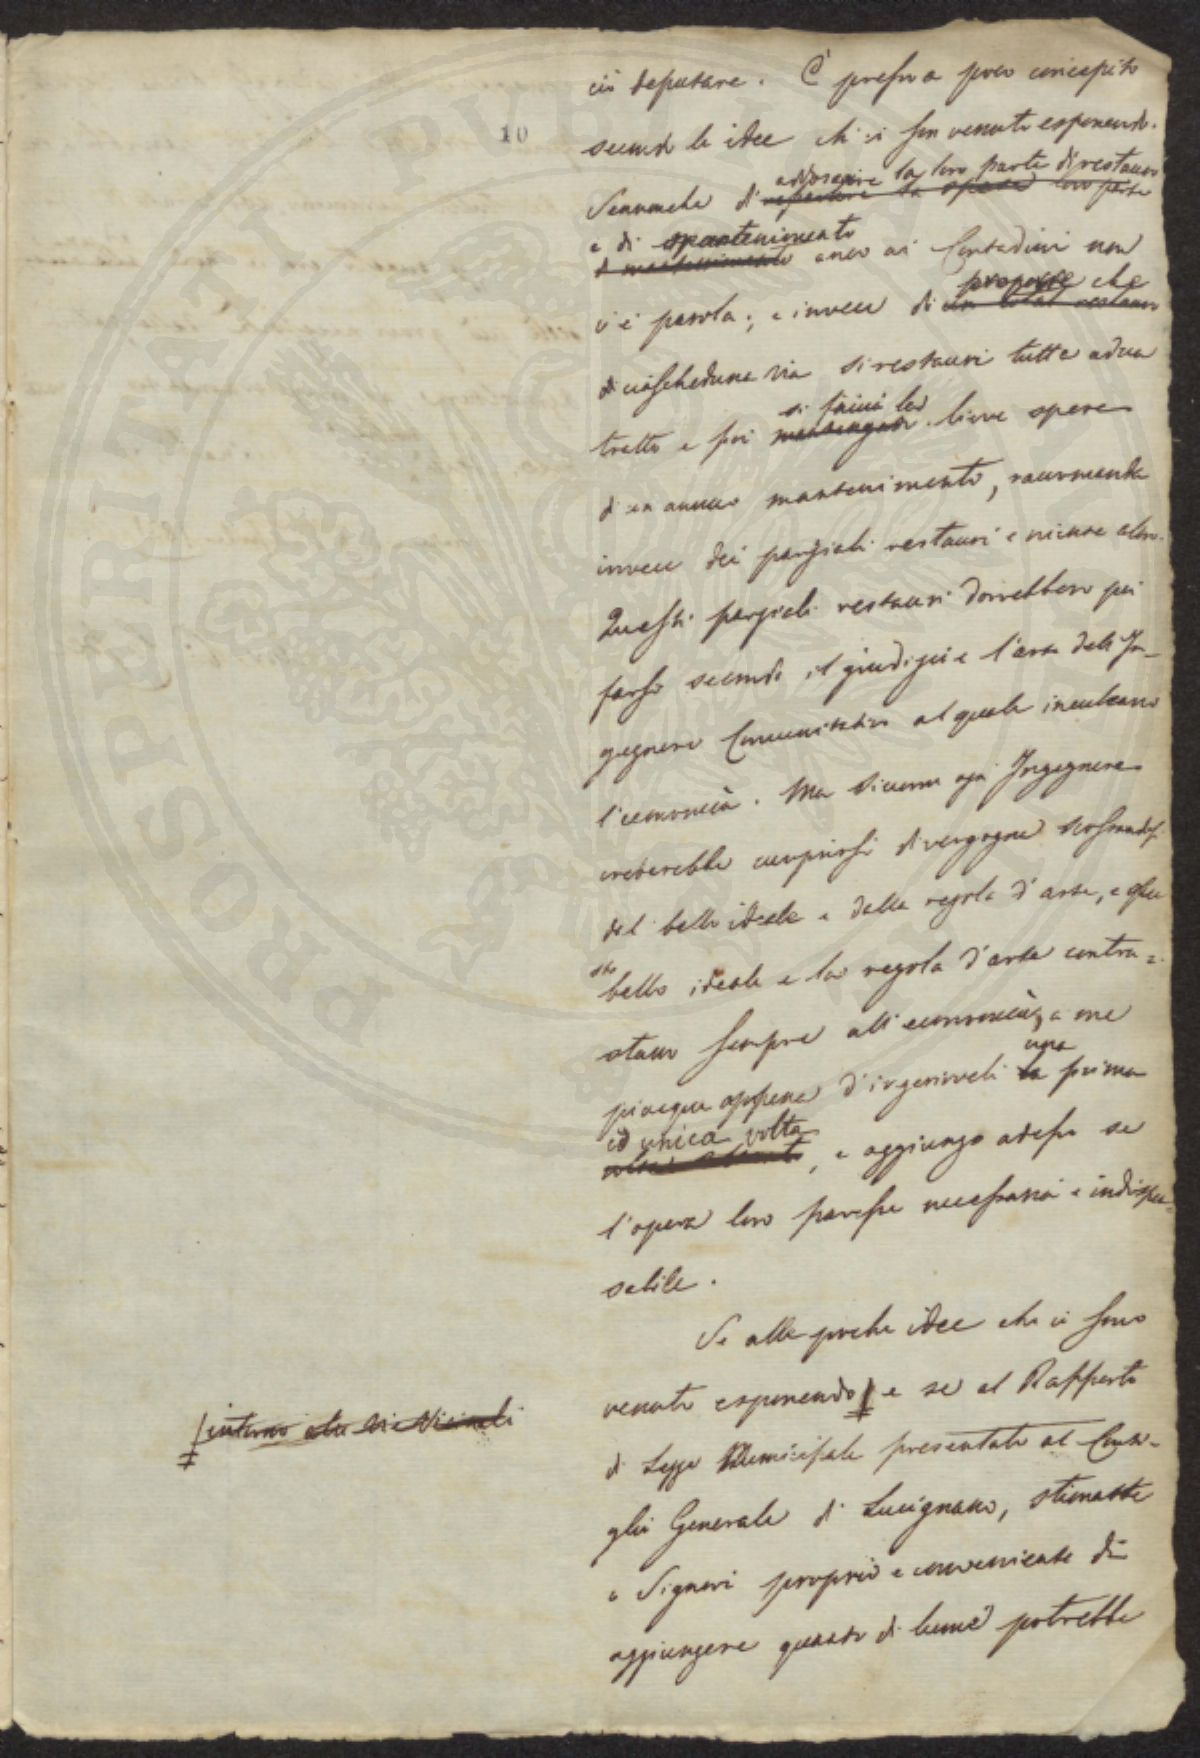 10
ciò deputare. È presso a poco concepito
secondo le idee che vi son venuto esponendo.
addossare la loro parte di restauro
Sennonche di repartire la spesa loro parte
e di mantenimento
e mantenimento anco ai Contadini non
proporre che
vi è parola; e invece di un total restauro
di ciascheduna via si restauri tutta ad un
si facciá la
tratto e poi mantengasi lieve opera
d'un annuo mantenimento, raccomanda
invece dei parziali restauri e niente altro.
Questi parziali restauri dovrebbero poi
farsi secondo il giudizio e l'arte dell'In-
gegnere Comunitativo al quale inculcano
l'economia. Ma siccome ogni Ingegnere
crederebbe cuoprirsi di vergogna scostandosi
dal bello ideale e dalla regola d'arte, e que
sto bello ideale e la regola d'arte contra=
stano sempre all'economia, a me
una
piacque appena d'ingerirveli la prima
ed unica volta
, e aggiungo adesso se
l'opera loro paresse necessaria e indispen=
sabile.
Se alle poche idee che vi sono
venuto esponendo e se al Rapporto
intorno alle Vie Vicinali
di Legge Municipale presentato al Consi-
glio Generale di Lucignano, stimaste
o Signori proprio e conveniente di
aggiungere quanto di lume potrebbe
PROSPERITATI PUBLICAE